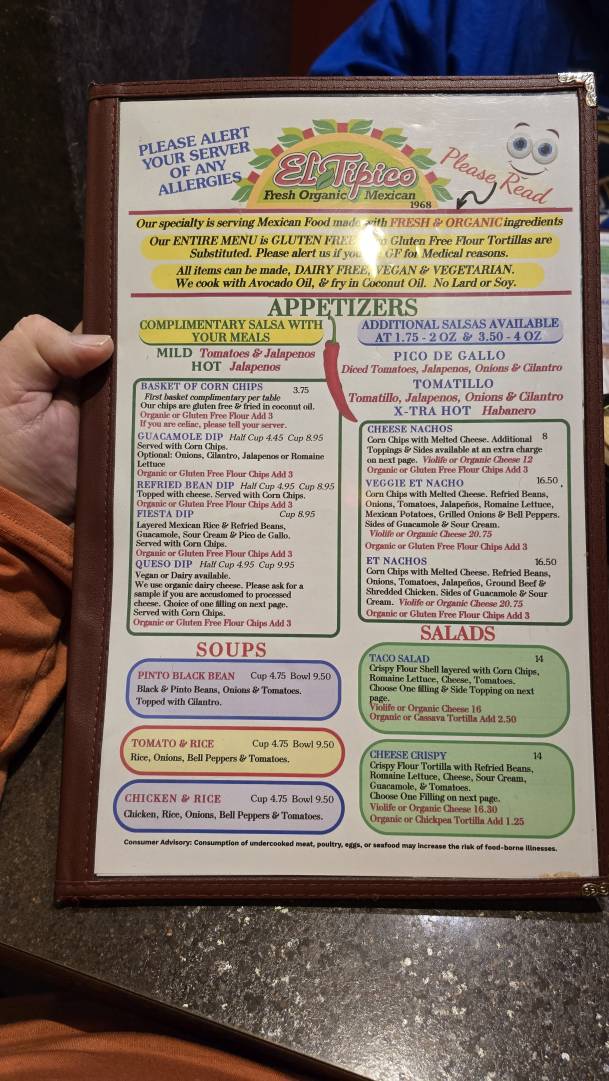 PLEASE ALERT
YOUR SERVER
OF ANY
ALLERGIES
El Tipico
Fresh Organic Mexican
1968
Please Read
Our specialty is serving Mexican Food made with FRESH & ORGANIC ingredients
Our ENTIRE MENU is GLUTEN FREE Gluten Free Flour Tortillas are
Substituted. Please alert us if you GF for Medical reasons.
All items can be made, DAIRY FREE, VEGAN & VEGETARIAN.
We cook with Avocado Oil, & fry in Coconut Oil. No Lard or Soy.
APPETIZERS
COMPLIMENTARY SALSA WITH
YOUR MEALS
MILD Tomatoes & Jalapenos
HOT Jalapenos
BASKET OF CORN CHIPS 3.75
First basket complimentary per table
Our chips are gluten free & fried in coconut oil.
Organic or Gluten Free Flour Add 3
If you are celiac, please tell your server.
GUACAMOLE DIP Half Cup 4.45 Cup 8.95
Served with Corn Chips.
Optional: Onions, Cilantro, Jalapenos or Romaine
Lettuce
Organic or Gluten Free Flour Chips Add 3
REFRIED BEAN DIP Half Cup 4.95 Cup 8.95
Topped with cheese. Served with Corn Chips.
Organic or Gluten Free Flour Chips Add 3
FIESTA DIP Cup 8.95
Layered Mexican Rice & Refried Beans,
Guacamole, Sour Cream & Pico de Gallo.
Served with Corn Chips.
Organic or Gluten Free Flour Chips Add 3
QUESO DIP Half Cup 4.95 Cup 9.95
Vegan or Dairy available.
We use organic dairy cheese. Please ask for a
sample if you are accustomed to processed
cheese. Choice of one filling on next page.
Served with Corn Chips.
Organic or Gluten Free Flour Chips Add 3
ADDITIONAL SALSAS AVAILABLE
AT 1.75 - 2 OZ & 3.50 - 4 OZ
PICO DE GALLO
Diced Tomatoes, Jalapenos, Onions & Cilantro
TOMATILLO
Tomatillo, Jalapenos, Onions & Cilantro
X-TRA HOT Habanero
CHEESE NACHOS 8
Corn Chips with Melted Cheese. Additional
Toppings & Sides available at an extra charge
on next page. Violife or Organic Cheese 12
Organic or Gluten Free Flour Chips Add 3
VEGGIE ET NACHO 16.50
Corn Chips with Melted Cheese. Refried Beans,
Onions, Tomatoes, Jalapeños, Romaine Lettuce,
Mexican Potatoes, Grilled Onions & Bell Peppers.
Sides of Guacamole & Sour Cream.
Violife or Organic Cheese 20.75
Organic or Gluten Free Flour Chips Add 3
ET NACHOS 16.50
Corn Chips with Melted Cheese. Refried Beans,
Onions, Tomatoes, Jalapeños, Ground Beef &
Shredded Chicken. Sides of Guacamole & Sour
Cream. Violife or Organic Cheese 20.75
Organic or Gluten Free Flour Chips Add 3
SOUPS
PINTO BLACK BEAN Cup 4.75 Bowl 9.50
Black & Pinto Beans, Onions & Tomatoes.
Topped with Cilantro.
TOMATO & RICE Cup 4.75 Bowl 9.50
Rice, Onions, Bell Peppers & Tomatoes.
CHICKEN & RICE Cup 4.75 Bowl 9.50
Chicken, Rice, Onions, Bell Peppers & Tomatoes.
SALADS
TACO SALAD 14
Crispy Flour Shell layered with Corn Chips,
Romaine Lettuce, Cheese, Tomatoes.
Choose One filling & Side Topping on next
page.
Violife or Organic Cheese 16
Organic or Cassava Tortilla Add 2.50
CHEESE CRISPY 14
Crispy Flour Tortilla with Refried Beans,
Romaine Lettuce, Cheese, Sour Cream,
Guacamole, & Tomatoes.
Choose One Filling on next page.
Violife or Organic Cheese 16.30
Organic or Chickpea Tortilla Add 1.25
Consumer Advisory: Consumption of undercooked meat, poultry, eggs, or seafood may increase the risk of food-borne illnesses.